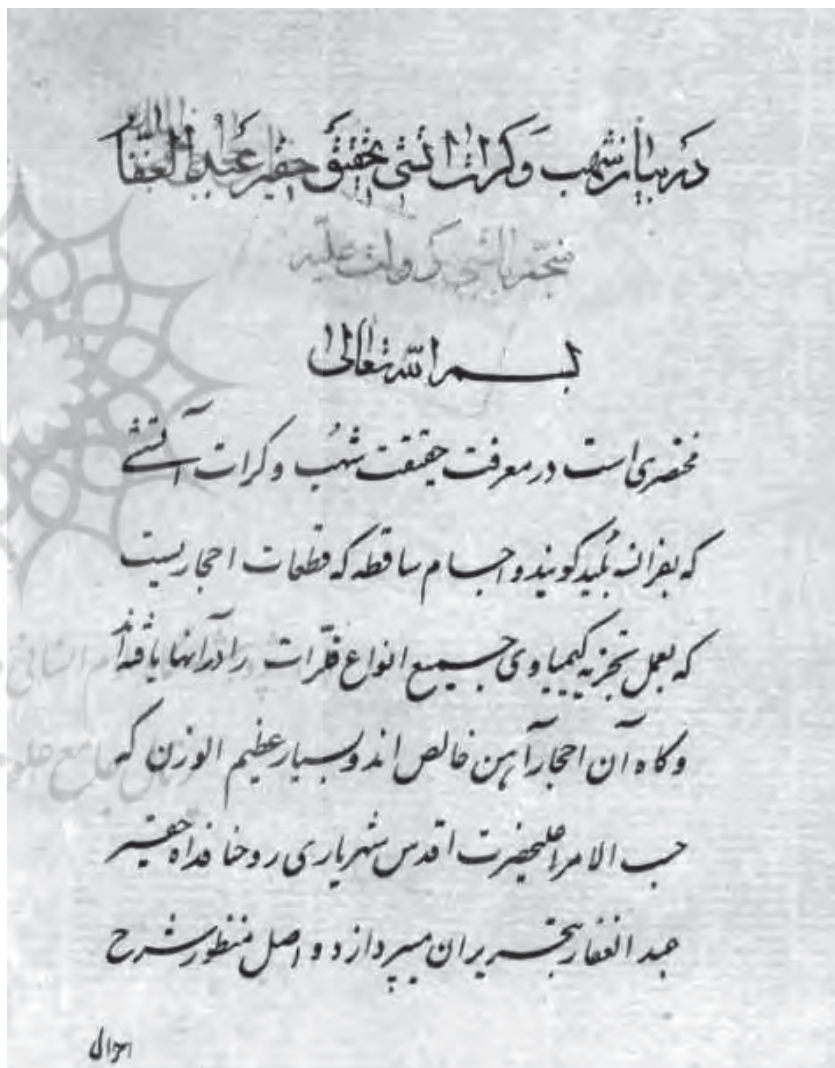 در بیان شهب و کرات آتشی بتحقیق حقیر عبدالغفار
منجم باشی دولت علیه
بسم الله تعالی
مختصری است در معرفت حقیقت شهُب و کرات آتشے
که بفرانسه بُلید کویند و اجسام ساقطه که قطعات احجاریست
که بعمل تجزیه کیمیاوی جمیع انواع فلزّات را در آنها یافته‌اند
و کاه آن احجار آهن خالص اند و بسیار عظیم الوزن که
حسب الامر اعلیحضرت اقدس شهریاری روحنا فداه حقیر
عبد الغفار بتحریر آن میپردازد و اصل منظور شرح
احوال